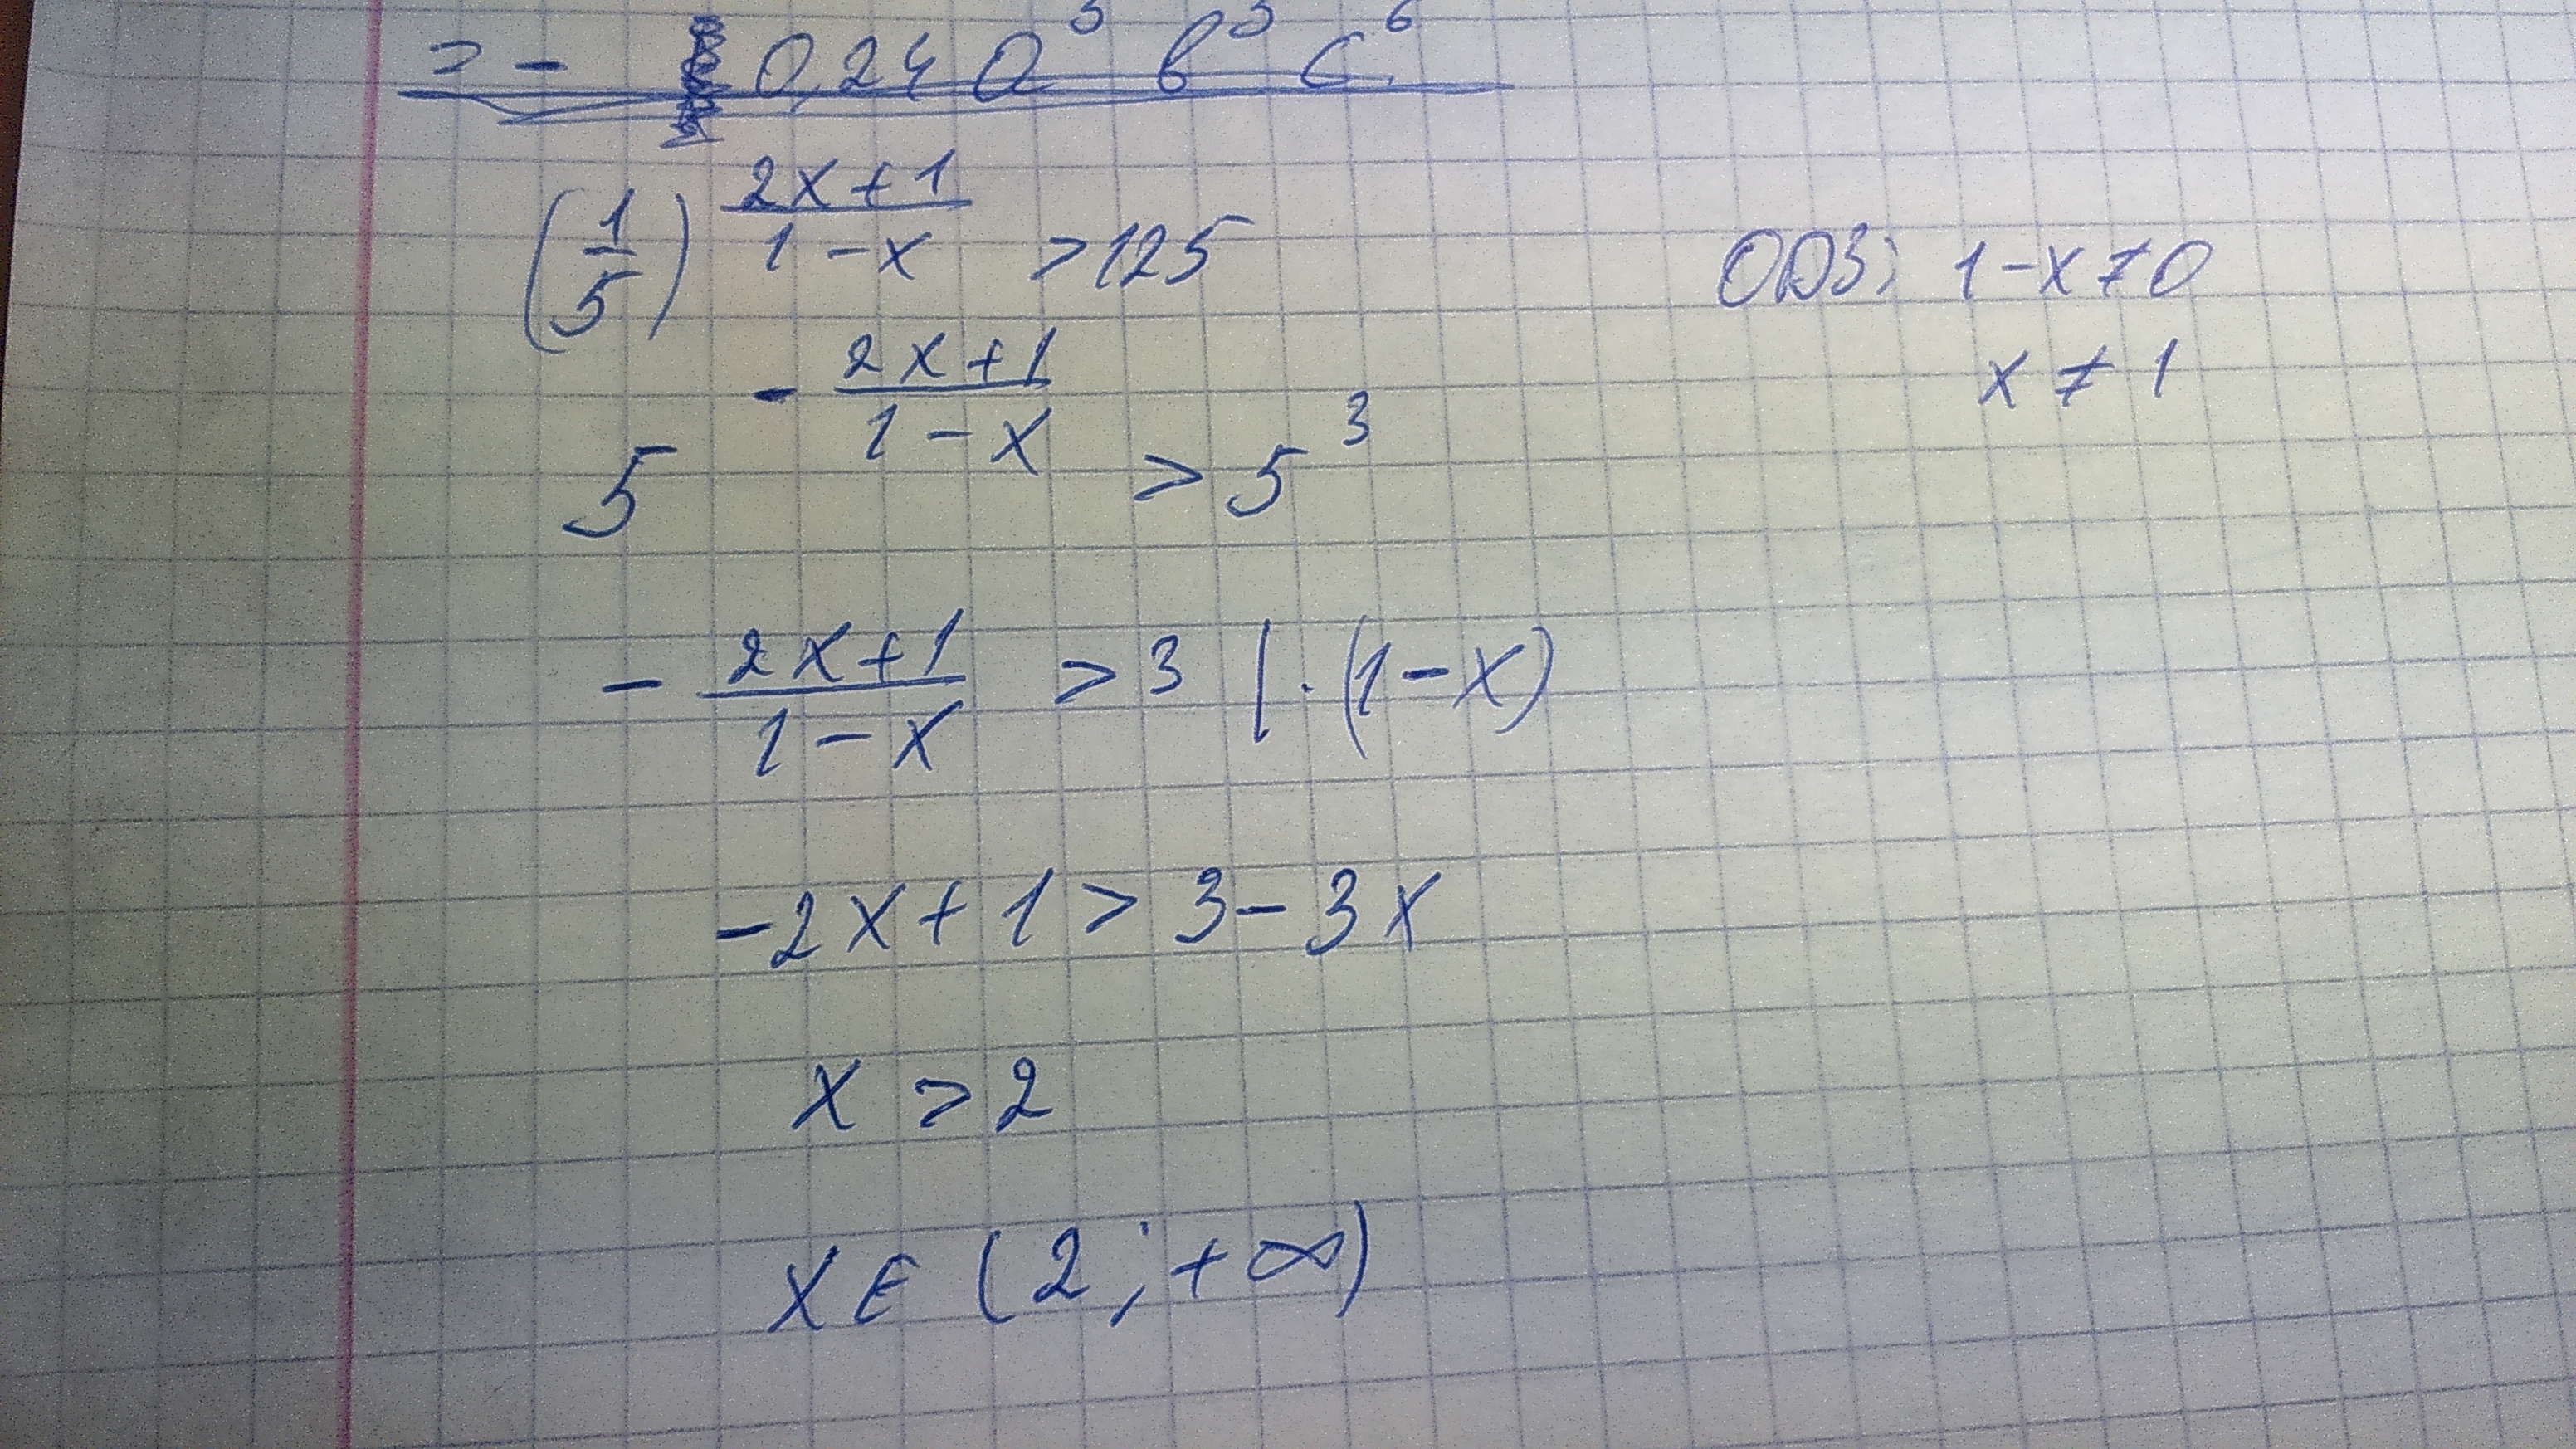 = - 0,24 a³ b⁵ c⁶
(1/5)^((2x+1)/(1-x)) > 125
ОДЗ: 1-x≠0
x ≠ 1
5^(-(2x+1)/(1-x)) > 5³
- (2x+1)/(1-x) > 3 | · (1-x)
-2x+1 > 3-3x
x > 2
x ∈ (2; +∞)